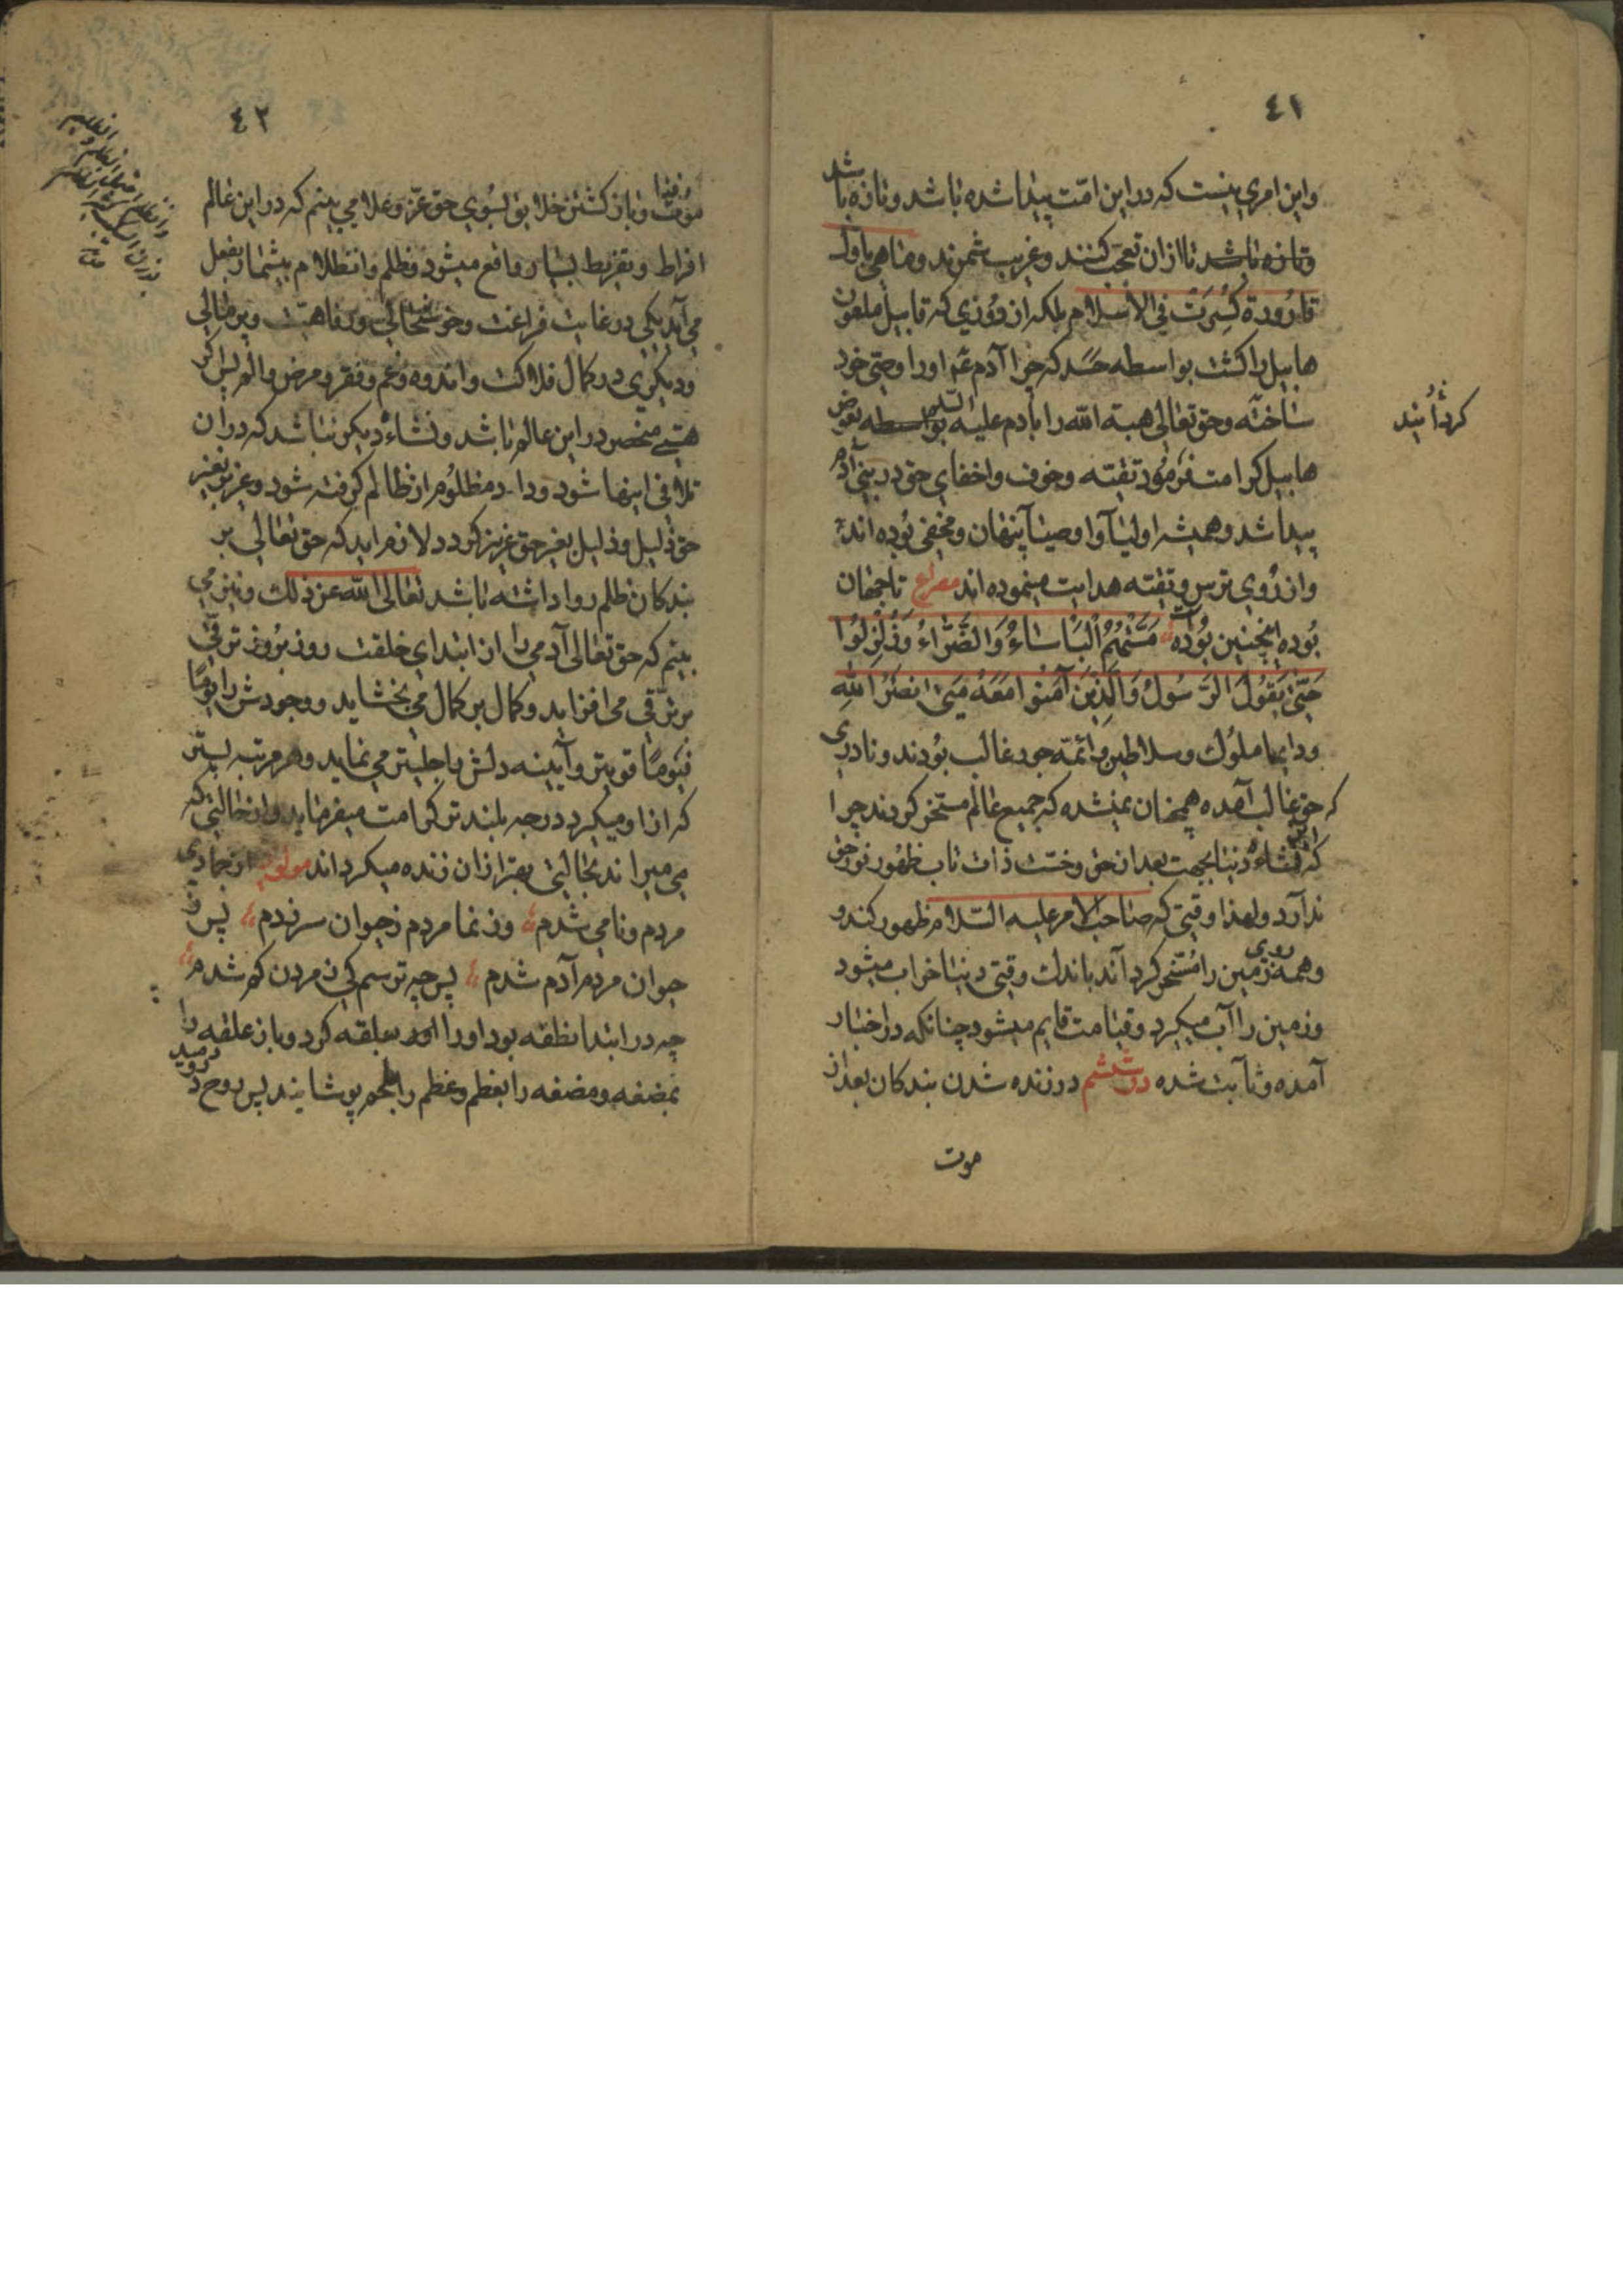 ٤١
واین امری نیست که در این امّت پیدا شده باشد و تازه باشد
وتازه باشد تا از آن تعجّب کنند و غریب شمرند و ما هی باوّل
قارُورة کُسِرَت فی الاسلام بلکه از رُوزی که قابیل ملعون
هابیل را کشت بواسطه حسد که چرا آدم ع‍م او را وصیّ خود
ساخته وحق تعالی هبة الله را بادم علیه السلم بواسطه بعوض
هابیل کرامت فرمُود تقیّه وخوف واخفای حق در بنی آدم
پیدا شد وهمیشه اولیآ واوصیآ پنهان ومخفی بُوده اند
واز رُوی ترس و تقیّه هدایت مینموده اند مصراع تا جهان
بُوده اینچنین بُوده است مَسَّتْهُمُ الْبَاسَاءُ وَالضَّرَّاءُ وَزُلْزِلُوا
حَتّیٰ یَقُولَ الرَّسُولُ وَالَّذِینَ آمَنُوا مَعَهُ مَتیٰ نَصْرُ اللهِ
ودایما ملُوك وسلاطین وائمّه جور غالب بُودند ونادری
که حق غالب آمده همچنان نمیشده که جمیع عالم مسخّر کردند چرا
که نشاءهٔ دنیا بجهت بعد از حق وخسّت ذات تاب ظهُور نور حق
ندارد ولهذا وقتی که صاحب الامر علیه السّلام ظهور کند و
وهمه روی زمین را مُسخّر کرداند باندك وقتی دنیا خراب میشود
وزمین را آب میکیرد وقیامت قایم میشود چنانکه در اخبار
آمده وثابت شده در ششم در زنده شدن بندکان بعد از
موت
کردانیند
٤٢
موت وباز کشتن خلایق بسُوی حق عزّ وعلا می بینم که در این عالم
افراط وتفریط بسیار واقع میشود وظلم وانظلام بیشمار بفعل
می آید یکی در غایت فراغت وخوشحالی ورفاهیّت وپر مالی
ودیکری در کمال فلاکت واندوه وغم وفقر ومرض والم پس اکر
هستی منحصر در این عالم باشد ونشاءهٔ دیکر نباشد که در آن
تلافی اینها شود وداد مظلُوم از ظالم کرفته شود وعزیز بغیر
حق ذلیل وذلیل بغیر حق عزیز کردد لازم اید که حق تعالی بر
بندکان ظلم روا داشته باشد تعالی الله عن ذلك ونیز می
بینم که حق تعالی آدمی را از ابتدای خلقت روز برُوز ترقّی
بر ترقّی می افزاید وکمال بر کمال می بخشاید ووجودش را یومًا
فیومًا قویتر وآیینه دلش را جلیتر می نماید وهر مرتبه پستتر
که از او میکیرد درجه بلندتر کرامت میفرماید واز حالتی که
می میراند بحالتی بهتر از آن زنده میکرداند مولوی از جمادی
مردم ونامی شدم وز نما مردم ز حیوان سر زدم پس ز
حیوان مردم آدم شدم پس چه ترسم کی ز مردن کم شدم
چه در ابتدا نطفه بود او را علقه کرد وباز علقه را
بمضغه ومضغه را بعظم وعظم را بلحم پوشانید پس روح در
دمید